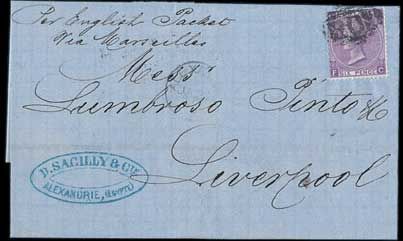 Per English Packet
Via Marseilles
Messrs
Lumbroso Pinto & Co
Liverpool
SIX PENCE
F C
D. SACILLY & CIE
ALEXANDRIE, (EGYPTE)